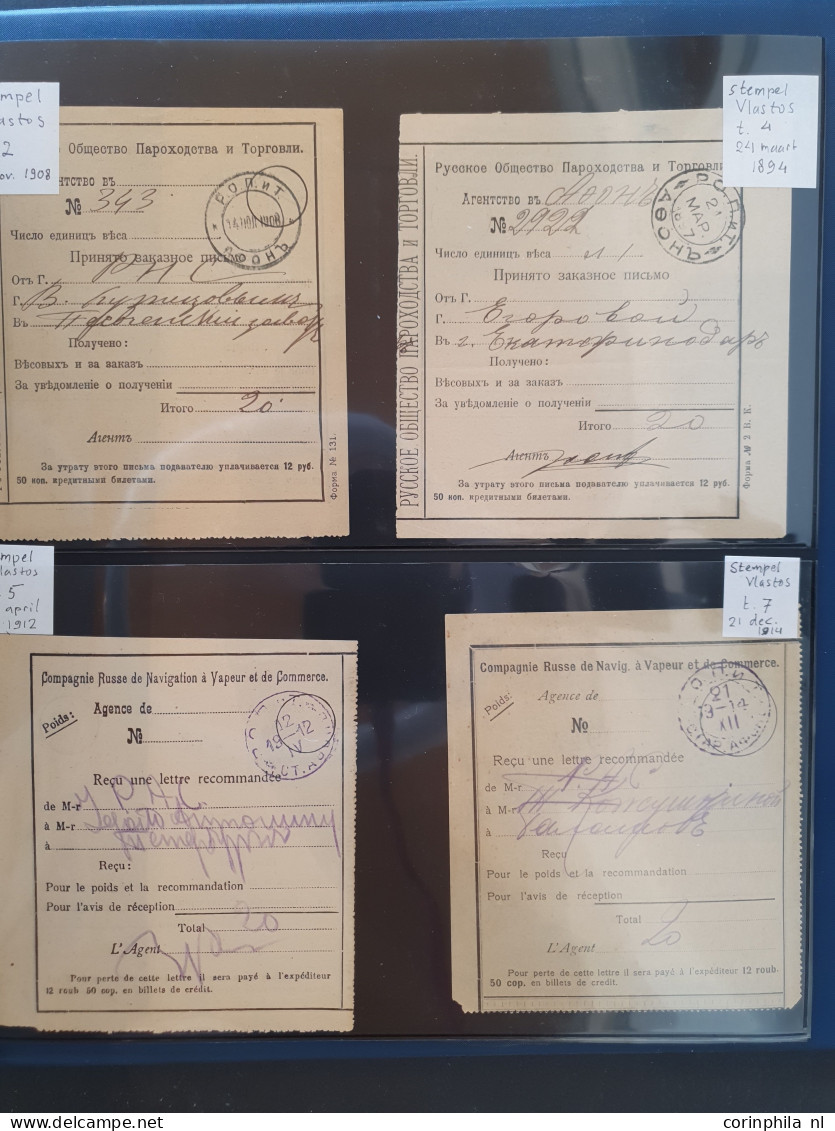 mpel
lastos
2
ov. 1908
Общество Пароходства и Торговли.
гентство въ
№ 343
Р.О.П.иТ.
Число единицъ вѣса
Принято заказное письмо
Отъ Г. РПС
Г.
Въ
Получено:
Вѣсовыхъ и за заказъ
За увѣдомленіе о полученіи
Итого 20
Агентъ
За утрату этого письма подавателю уплачивается 12 руб.
50 коп. кредитными билетами.
Форма № 131.
stempel
Vlastos
t. 4
21 maart
1894
РУССКОЕ ОБЩЕСТВО ПАРОХОДСТВА И ТОРГОВЛИ.
Русское Общество Пароходства и Торговли.
Агентство въ Аѳонъ
№ 2922
Р.О.П.иТ.
21
МАР.
АѲОНЪ
Число единицъ вѣса
Принято заказное письмо
Отъ Г.
Г. Егоровой
Въ г. Екатеринодаръ
Получено:
Вѣсовыхъ и за заказъ
За увѣдомленіе о полученіи
Итого 20
Агентъ
За утрату этого письма подавателю уплачивается 12 руб.
50 коп. кредитными билетами.
Форма № 2 В. К.
mpel
lastos
5
april
1912
Compagnie Russe de Navigation à Vapeur et de Commerce.
Poids:
Agence de
№
12
19-12
IV
Reçu une lettre recommandée
de M-r
à M-r
à
Reçu:
Pour le poids et la recommandation
Pour l'avis de réception
Total 20
L'Agent
Pour perte de cette lettre il sera payé à l'expéditeur
12 roub. 50 cop. en billets de crédit.
Stempel
Vlastos
t. 7
21 dec.
1914
Compagnie Russe de Navig. à Vapeur et de Commerce.
Poids:
Agence de
№
21
9-14
XII
Reçu une lettre recommandée
de M-r
à M-r
à
Reçu
Pour le poids et la recommandation
Pour l'avis de réception
Total
L'Agent 20
Pour perte de cette lettre il sera payé à l'expéditeur 12 roub.
50 cop. en billets de crédit.
corinphila nl